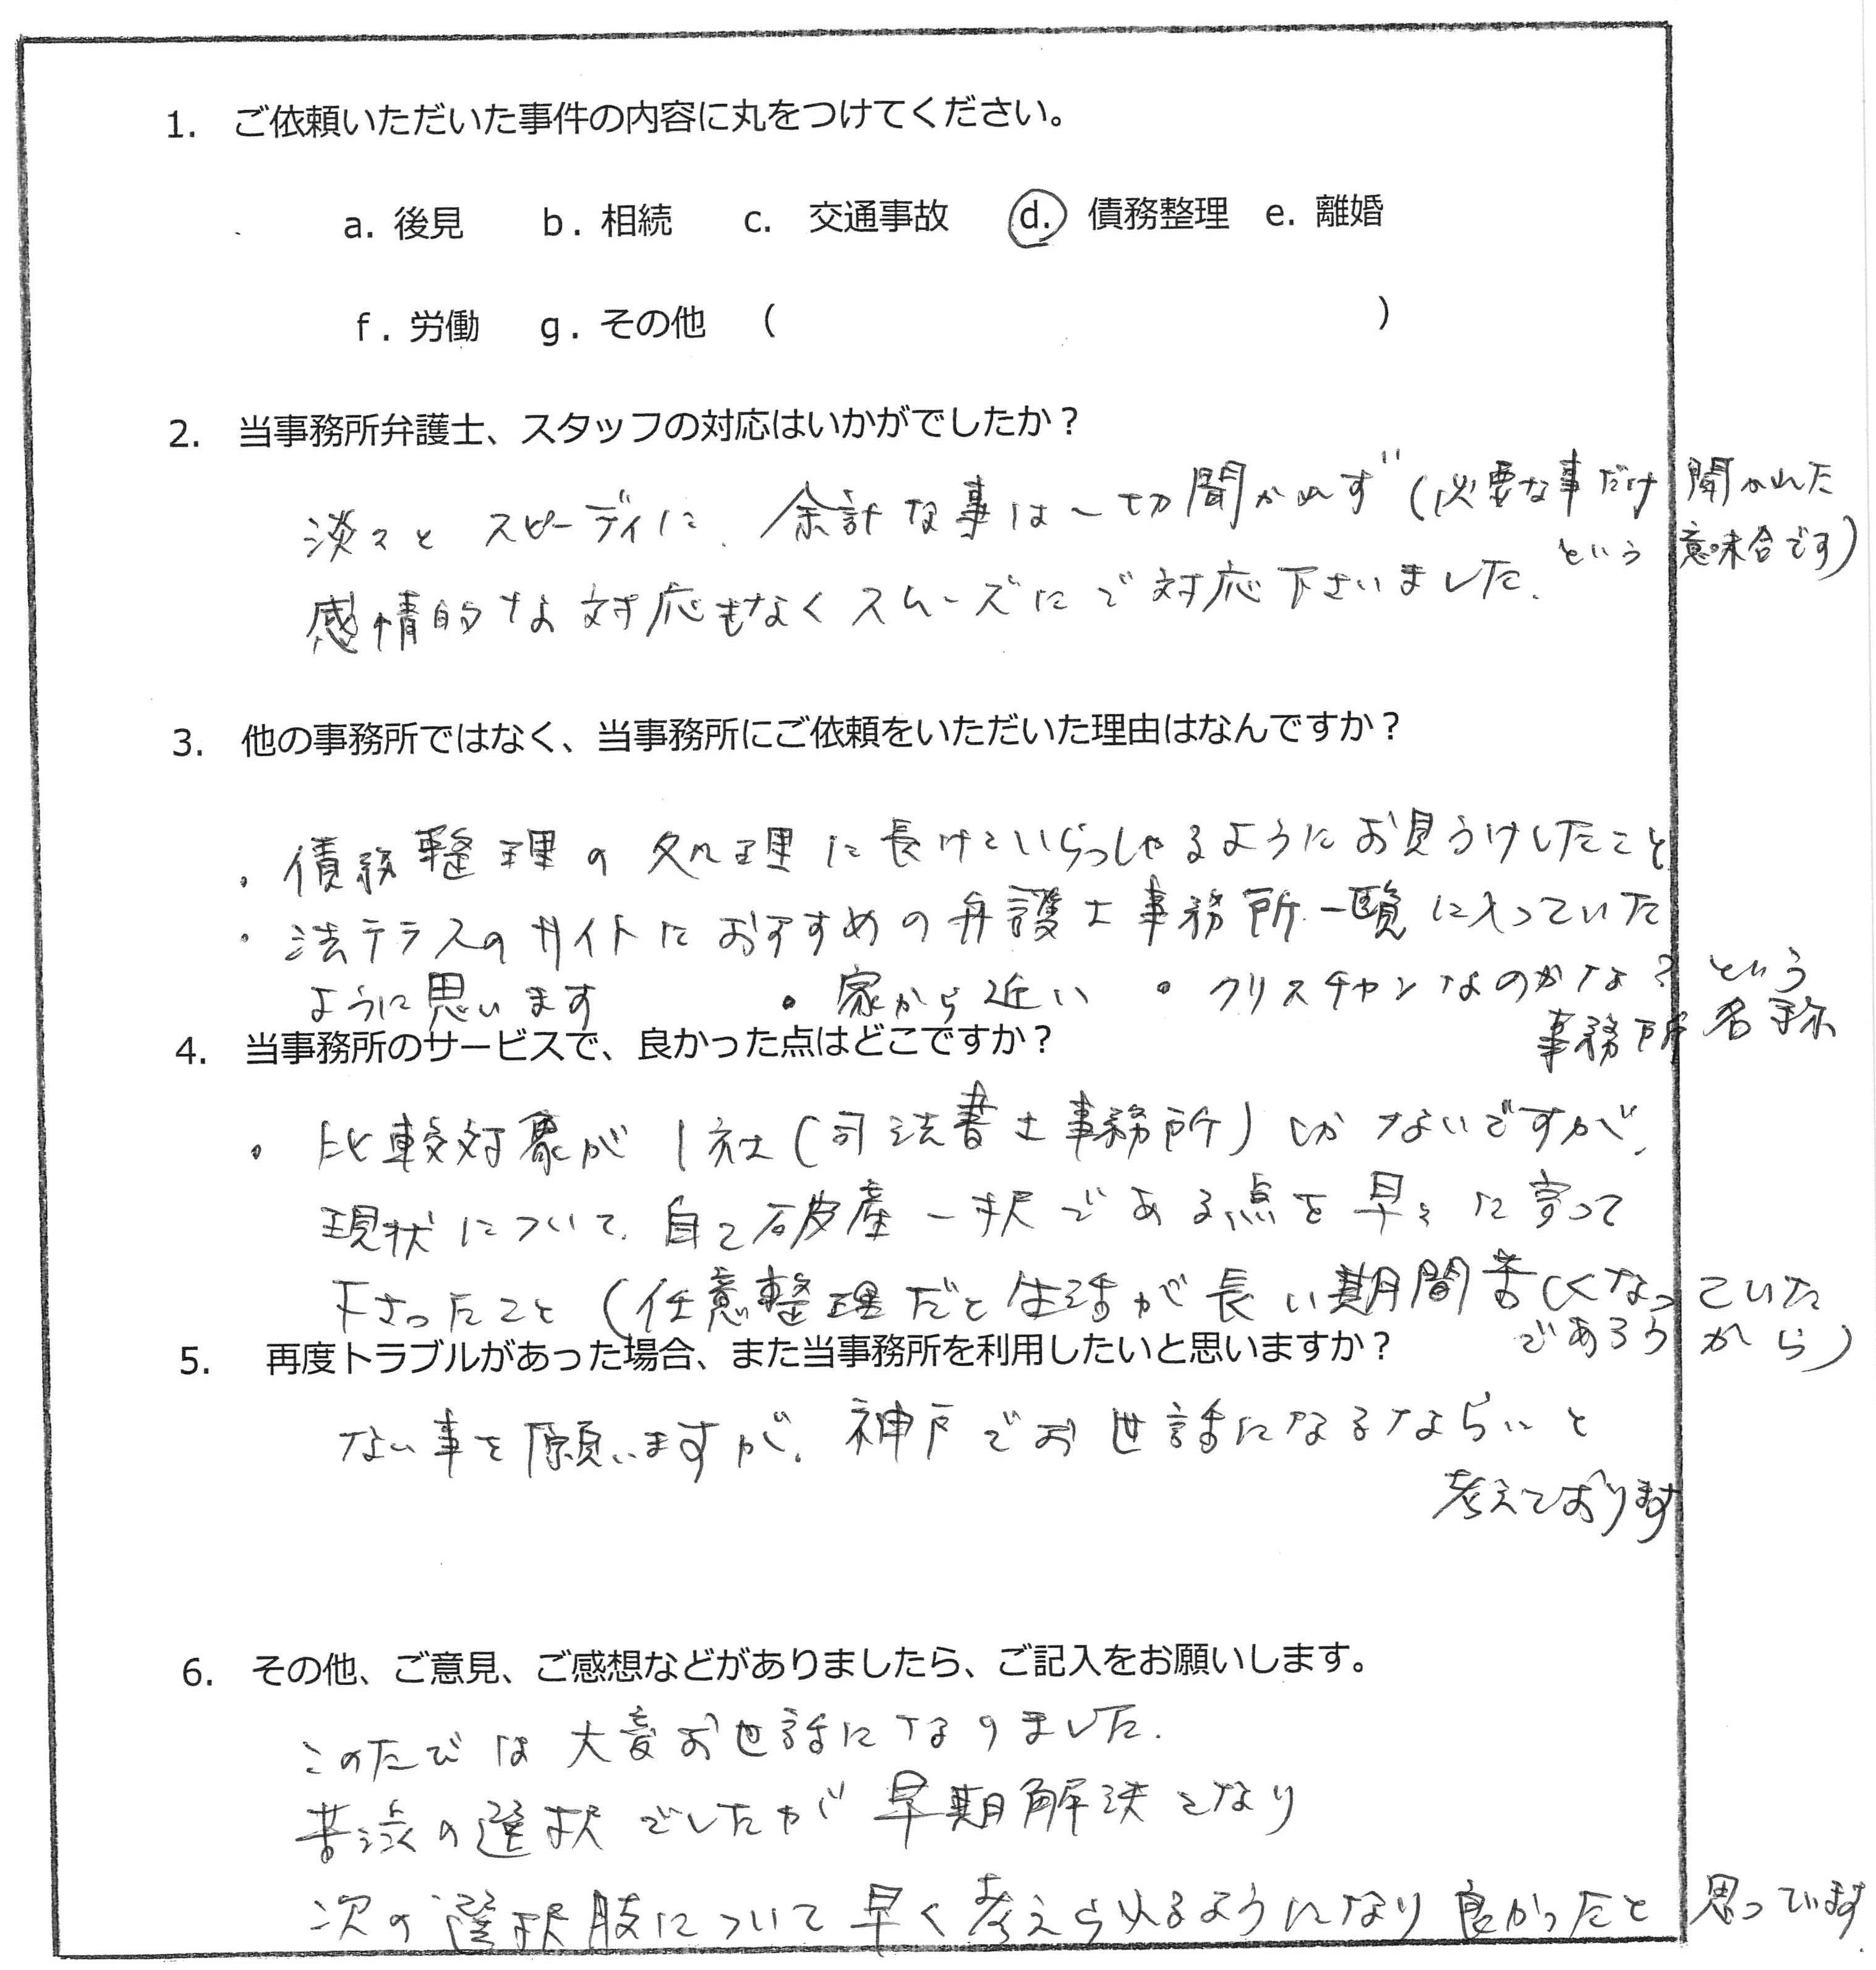 1. ご依頼いただいた事件の内容に丸をつけてください。
a. 後見 b. 相続 c. 交通事故 d. 債務整理 e. 離婚
f. 労働 g. その他 ( )
2. 当事務所弁護士、スタッフの対応はいかがでしたか？
淡々と スピーディに、余計な事は一切聞かれず (必要な事だけ聞かれた
という意味合です)
感情的な対応もなくスムーズにご対応下さいました.
3. 他の事務所ではなく、当事務所にご依頼をいただいた理由はなんですか？
・債務整理の処理に長けていらっしゃるようにお見うけしたこと
・法テラスのサイトにおすすめの弁護士事務所一覧に入っていた
ように思います ・家から近い ・クリスチャンなのかな？という
事務所名称
4. 当事務所のサービスで、良かった点はどこですか？
・比較対象が1社(司法書士事務所)しかないですが、
現状について、自己破産一択である点を早々に言って
下さったこと (任意整理だと生活が長い期間苦しくなっていた
であろうから)
5. 再度トラブルがあった場合、また当事務所を利用したいと思いますか？
ない事を願いますが、神戸でお世話になるならいと
考えております
6. その他、ご意見、ご感想などがありましたら、ご記入をお願いします。
このたびは大変お世話になりました.
苦渋の選択でしたが早期解決となり
次の選択肢について早く考えられるようになり良かったと思っています.